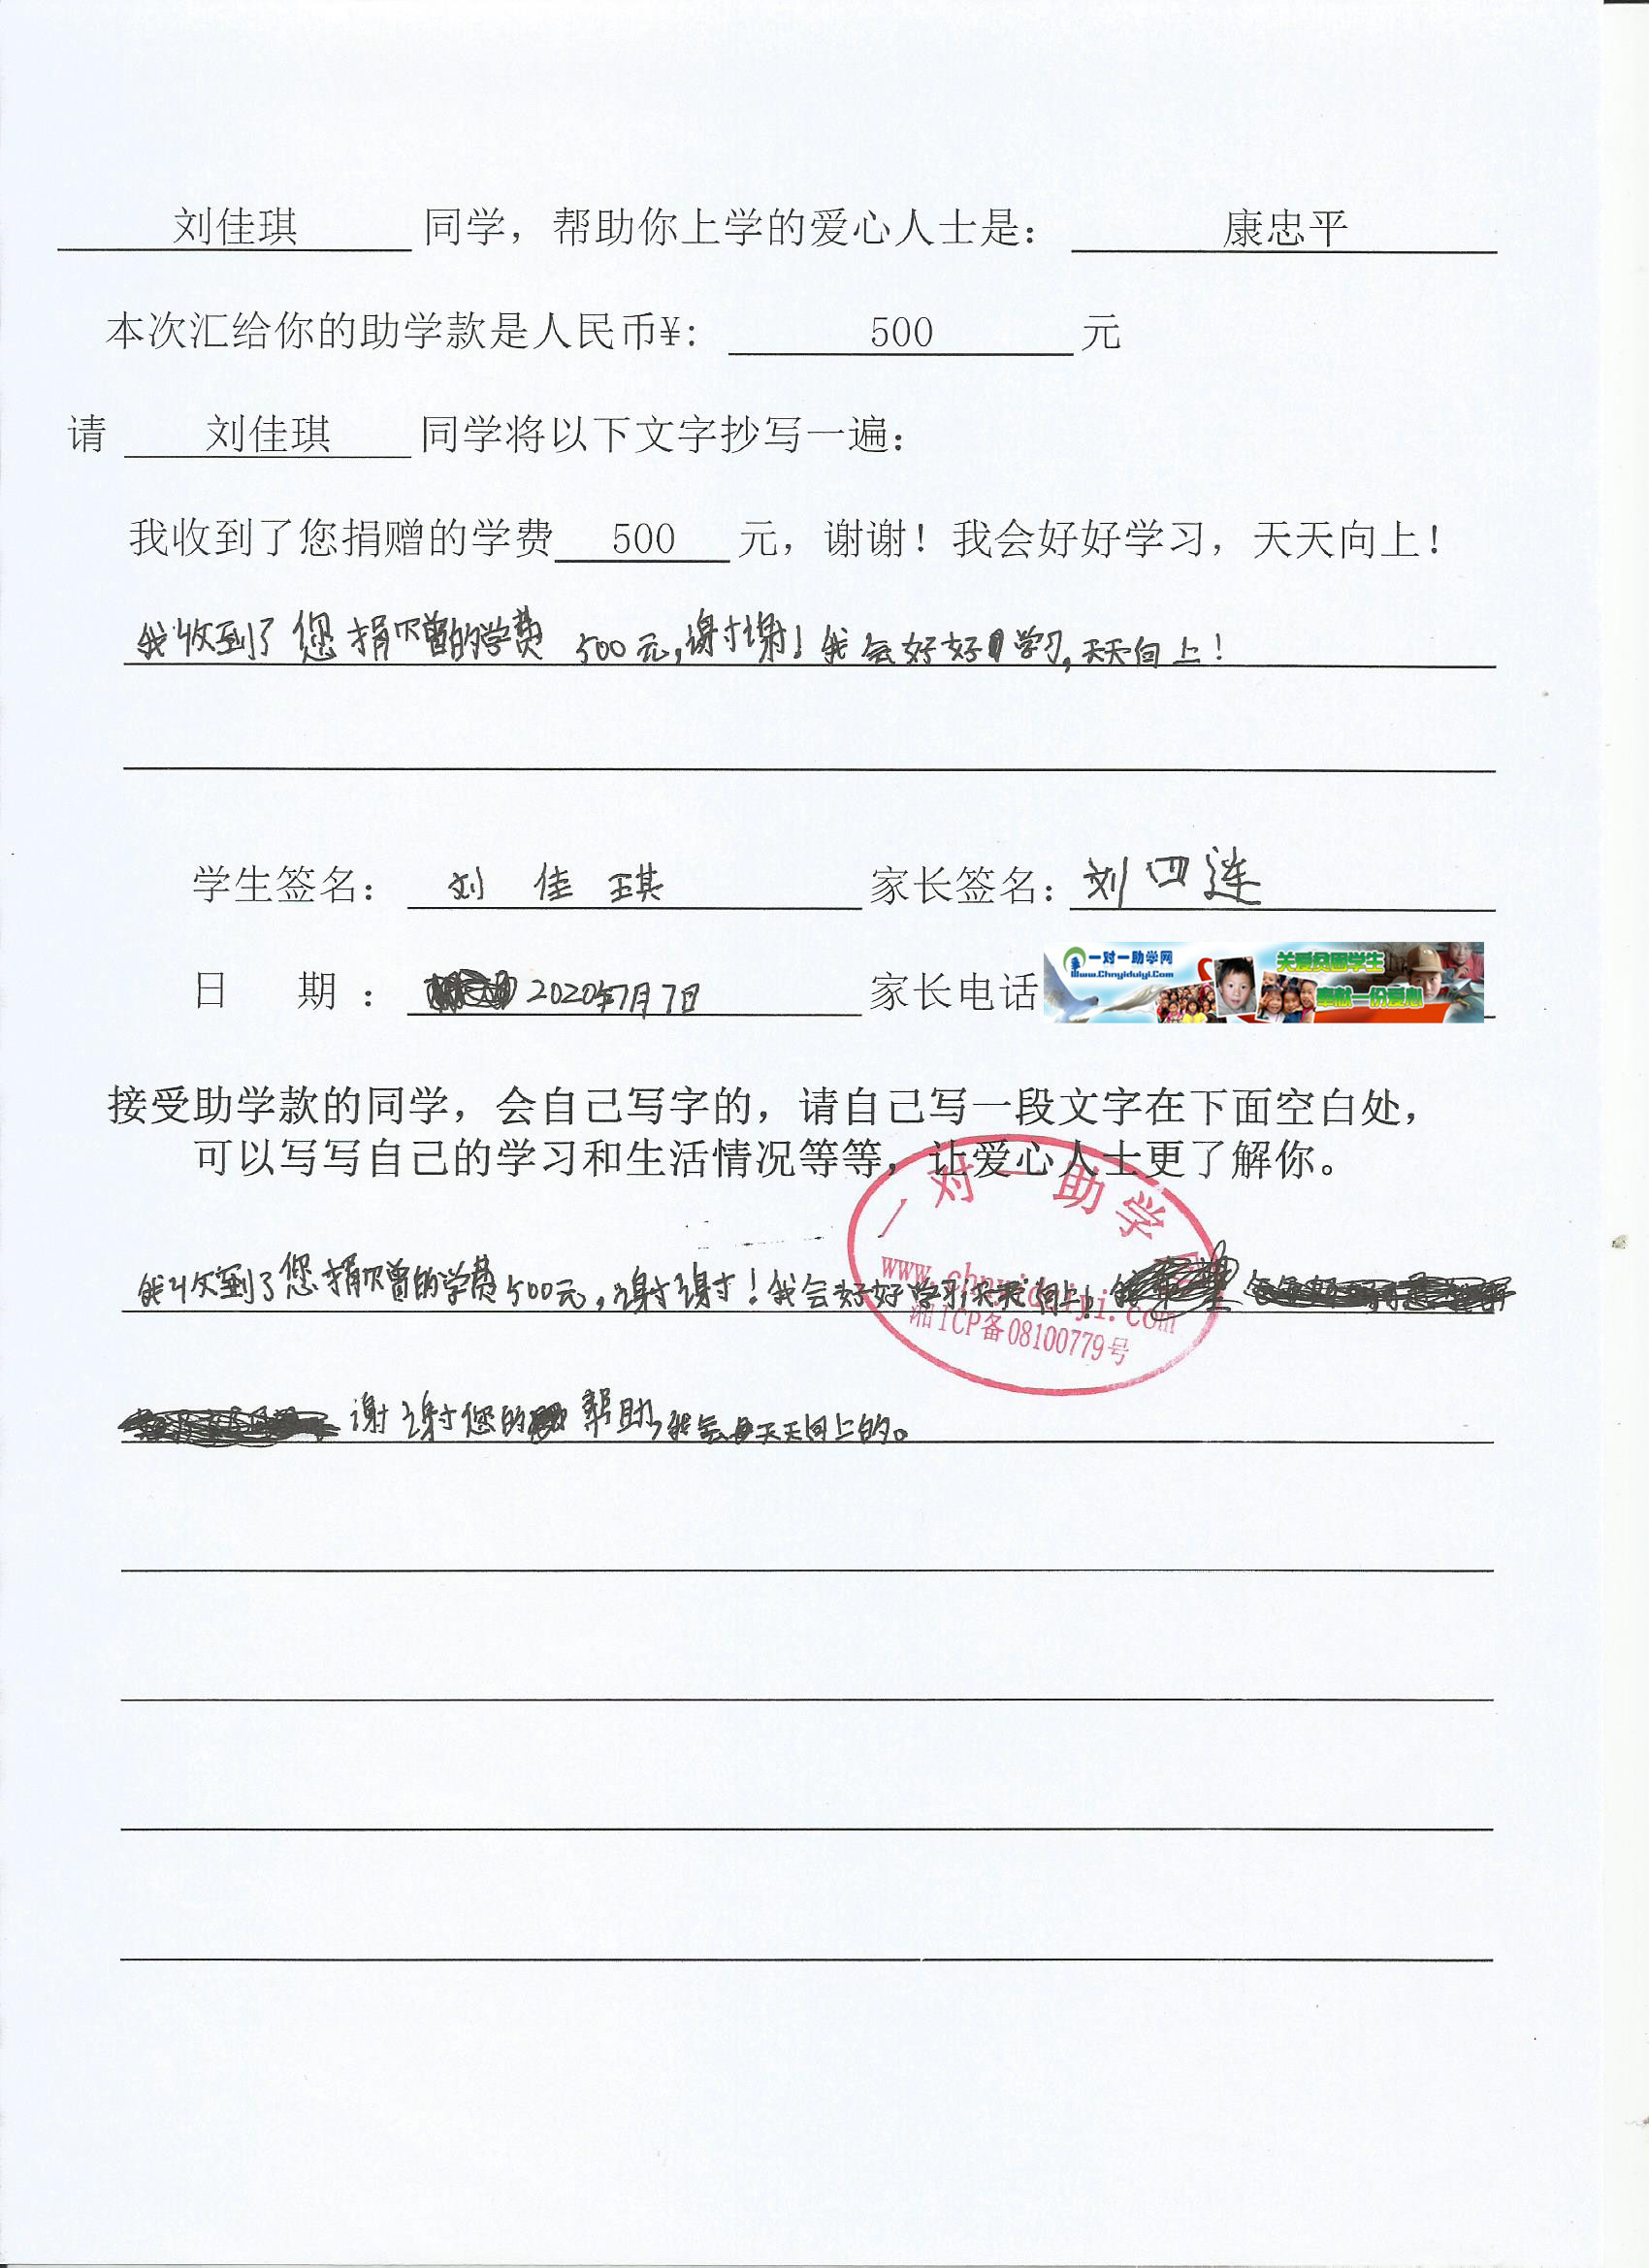 刘佳琪 同学，帮助你上学的爱心人士是： 康忠平
本次汇给你的助学款是人民币¥: 500 元
请 刘佳琪 同学将以下文字抄写一遍：
我收到了您捐赠的学费 500 元，谢谢！我会好好学习，天天向上！
我收到了您捐赠的学费 500元,谢谢！我会好好学习,天天向上！
学生签名： 刘佳琪 家长签名： 刘四连
日 期： 2020年7月7日 家长电话
一对一助学网
Www.Chnyiduiyi.Com
关爱贫困学生
奉献一份爱心
接受助学款的同学，会自己写字的，请自己写一段文字在下面空白处，
可以写写自己的学习和生活情况等等，让爱心人士更了解你。
一对一助学网
www.chnyiduiyi.com
湘ICP备08100779号
我收到了您捐赠的学费500元,谢谢！我会好好学习天天向上！
谢谢您的帮助,我会天天向上的。